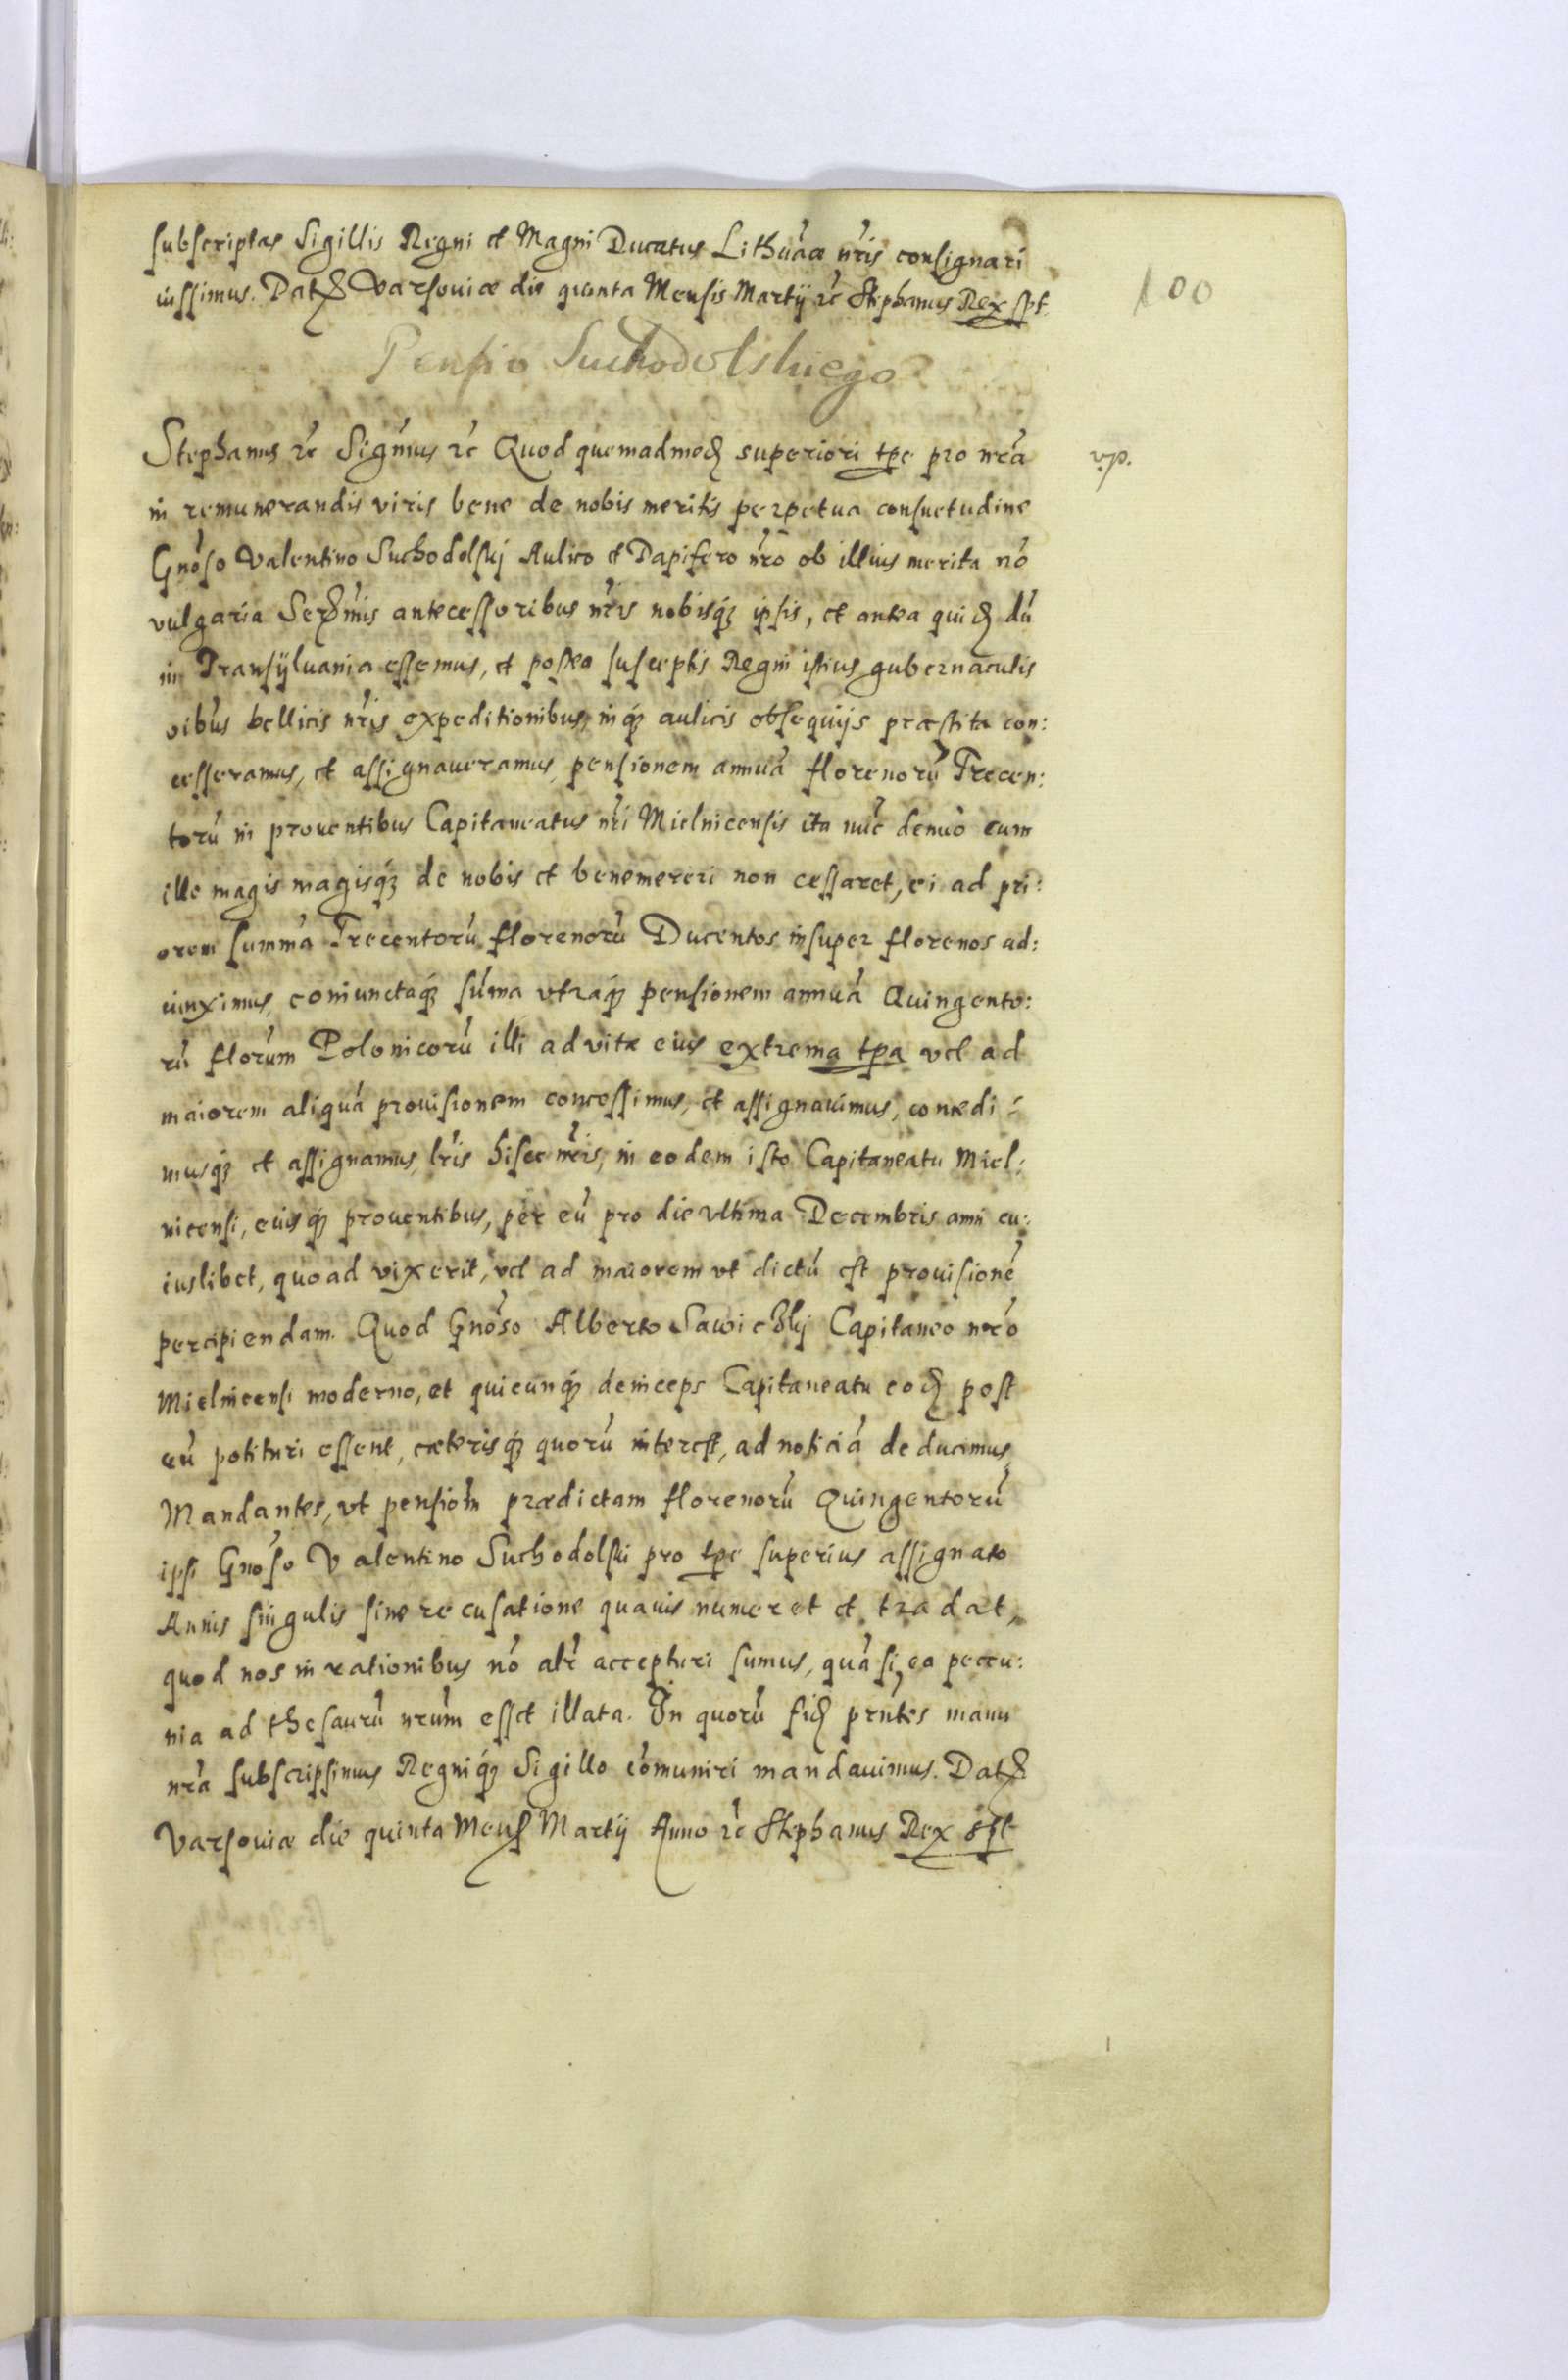 subscriptas Sigillis Regni et Magni Ducatus Lithuãæ nris consignari
iussimus. Datȩ Varsouiæ die quinta Mensis Martij rc̃ Stephanus Rex sst
100
Pensio Suchodolskiego
Stephanus rc̃ Sigmus rc̃ Quod quemadmodȩ superiori tpe pro nrã
in remunerandis viris bene de nobis meritis perpetua consuetudine
Gnõso Valentino Suchodolskj Aulico et Dapifero nrõ ob illius merita nõ
vulgaria Serȩmis antecessoribus nris nobisq₃ ipsis, et antea quidȩ dũ
in Transÿluania essemus, et postea susceptis Regni istius gubernaculis
oibus bellicis nris expeditionibus, inq₃ aulicis obsequijs præstita con:
cesseramus, et assignaueramus, pensionem annuã florenorũ Trecen:
torũ in prouentibus Capitaneatus nri Mielnicensis ita nũc denuò cum
ille magis magisq₃ de nobis et benemereri non cessaret, ei ad pri:
orem summã Trecentorũ florenorũ Ducentos insuper florenos ad:
iunximus, coniunctaq₃ sũma vtraq₃ pensionem annuã Quingento:
rũ florum Polonicorũ illi ad vitæ eius extrema tpa vel ad
maiorem aliquã prouisionem concessimus, et assignauimus, concedi:
musq₃ et assignamus, lris hisce nris, in eodem isto Capitaneatu Miel:
nicensi, eiusq₃ prouentibus, per eũ pro die vltima Decembris anni cu:
iuslibet, quoad vixerit, vel ad maiorem vt dictũ est prouisionẽ
percipiendam. Quod Gnõso Alberto Sawiczkj Capitaneo nrõ
Mielnicensi moderno, et quicunq₃ deinceps Capitaneatu eodȩ post
eũ potituri essent, cæterisq₃ quorũ interest, ad noticiã deducimus,
Mandantes, vt pensiom̃ prædictam florenorũ Quingentorũ
ipsi Gnõso Valentino Suchodolski pro tpe superius assignato
Annis singulis sine recusatione quauis numeret et tradat,
quod nos in rationibus nõ alr̃ accepturi sumus, quã si ea pecu:
nia ad thesaurũ nrũm esset illata. In quorũ fidȩ prñtes manu
nrã subscripsimus Regniq₃ Sigillo cõmuniri mandauimus. Datȩ
Varsouiæ die quinta Mensȩ Martij Anno rc̃ Stephanus Rex sst